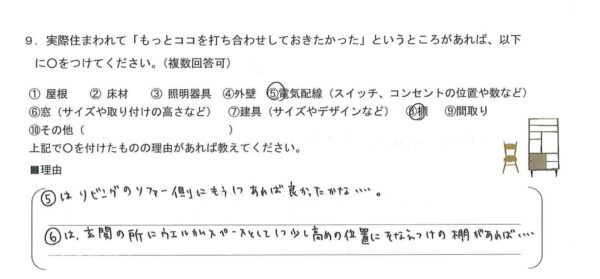 9．実際住まわれて「もっとココを打ち合わせしておきたかった」というところがあれば、以下
に〇をつけてください。（複数回答可）
① 屋根　② 床材　③ 照明器具　④外壁　⑤電気配線（スイッチ、コンセントの位置や数など）
⑥窓（サイズや取り付けの高さなど）　⑦建具（サイズやデザインなど）　⑧棚　⑨間取り
⑩その他（　　　　　　　　　　　　）
上記で〇を付けたものの理由があれば教えてください。
■理由
⑤は リビングのソファー側にもう1つあれば良かったかな‥‥。
⑥は、玄関の所にウエルカムスペースとして1つ少し高めの位置にそなえつけの棚があれば‥‥